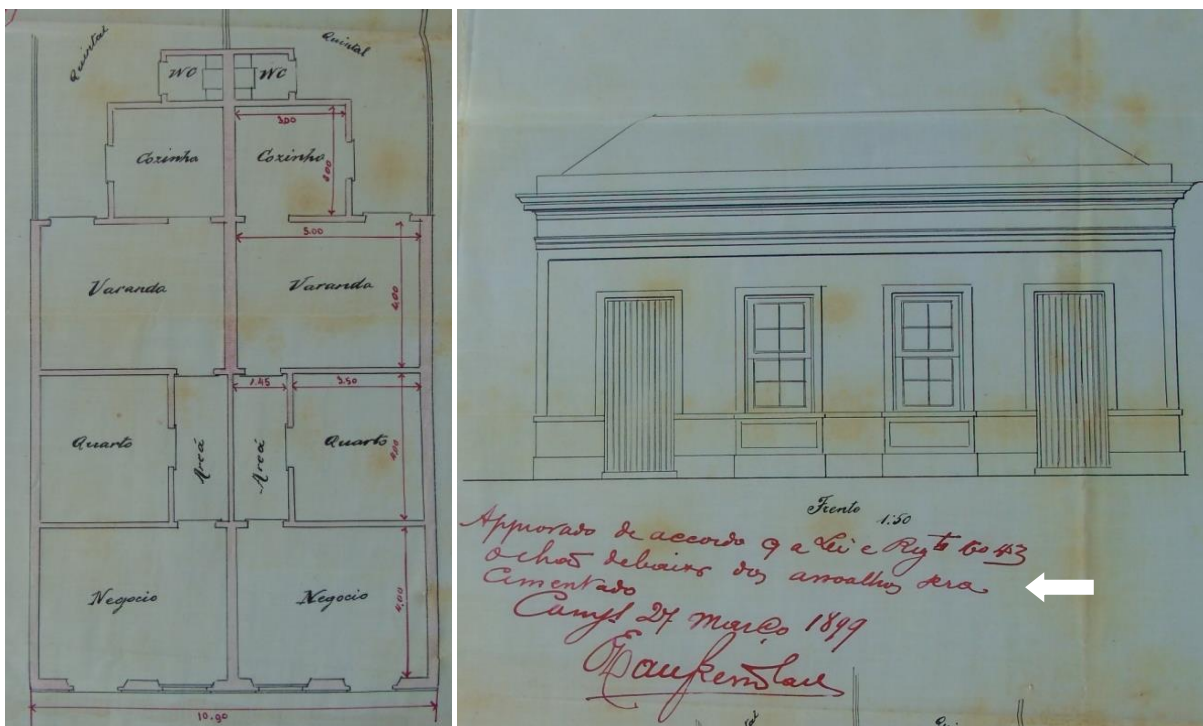 Quintal
Quintal
WC
WC
3,00
Cozinha
Cozinha
3,00
5.00
Varanda
Varanda
4,00
1.45
3.50
Quarto
Areá
Areá
Quarto
4,00
Negocio
Negocio
4,00
10.90
Frente 1:50
Approvado de accordo
a Lei e
o chão debaixo dos assoalhos será
Cimentado
27 Março 1899